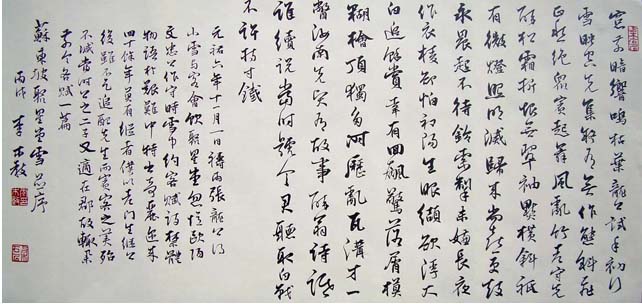 窗前暗響鳴枯葉龍公試手初行
雪映空先集疑有無作態斜飛
正愁絕眾賓起舞風亂竹老守先
醉松霜折恨無翠袖點橫斜祇
有微燈照明滅歸來尚喜更鼓
永晨起不待鈴索掣未嫌長夜
作衣棱却怕初陽生眼纈欲浮大
白追餘賞幸有回飆驚落屑模
糊檜頂獨多時歷亂瓦溝才一
瞥汝南先賢有故事醉翁詩話
誰續說當時號令君聽取白戰
不許持寸鐵
元祐六年十一月一日禱雨張龍公得
小雪与客會飲聚星堂忽憶歐陽
文忠公作守時雪中約客賦詩禁體
物語於艱難中特出奇麗迩來
四十餘年莫有繼者僕以老門生繼公
後雖不足追配先生而賓客之美殆
不減當時公之二子又適在郡故輒舉
前令各賦一篇
蘇東坡聚星堂雪並序
丙戌 李木教